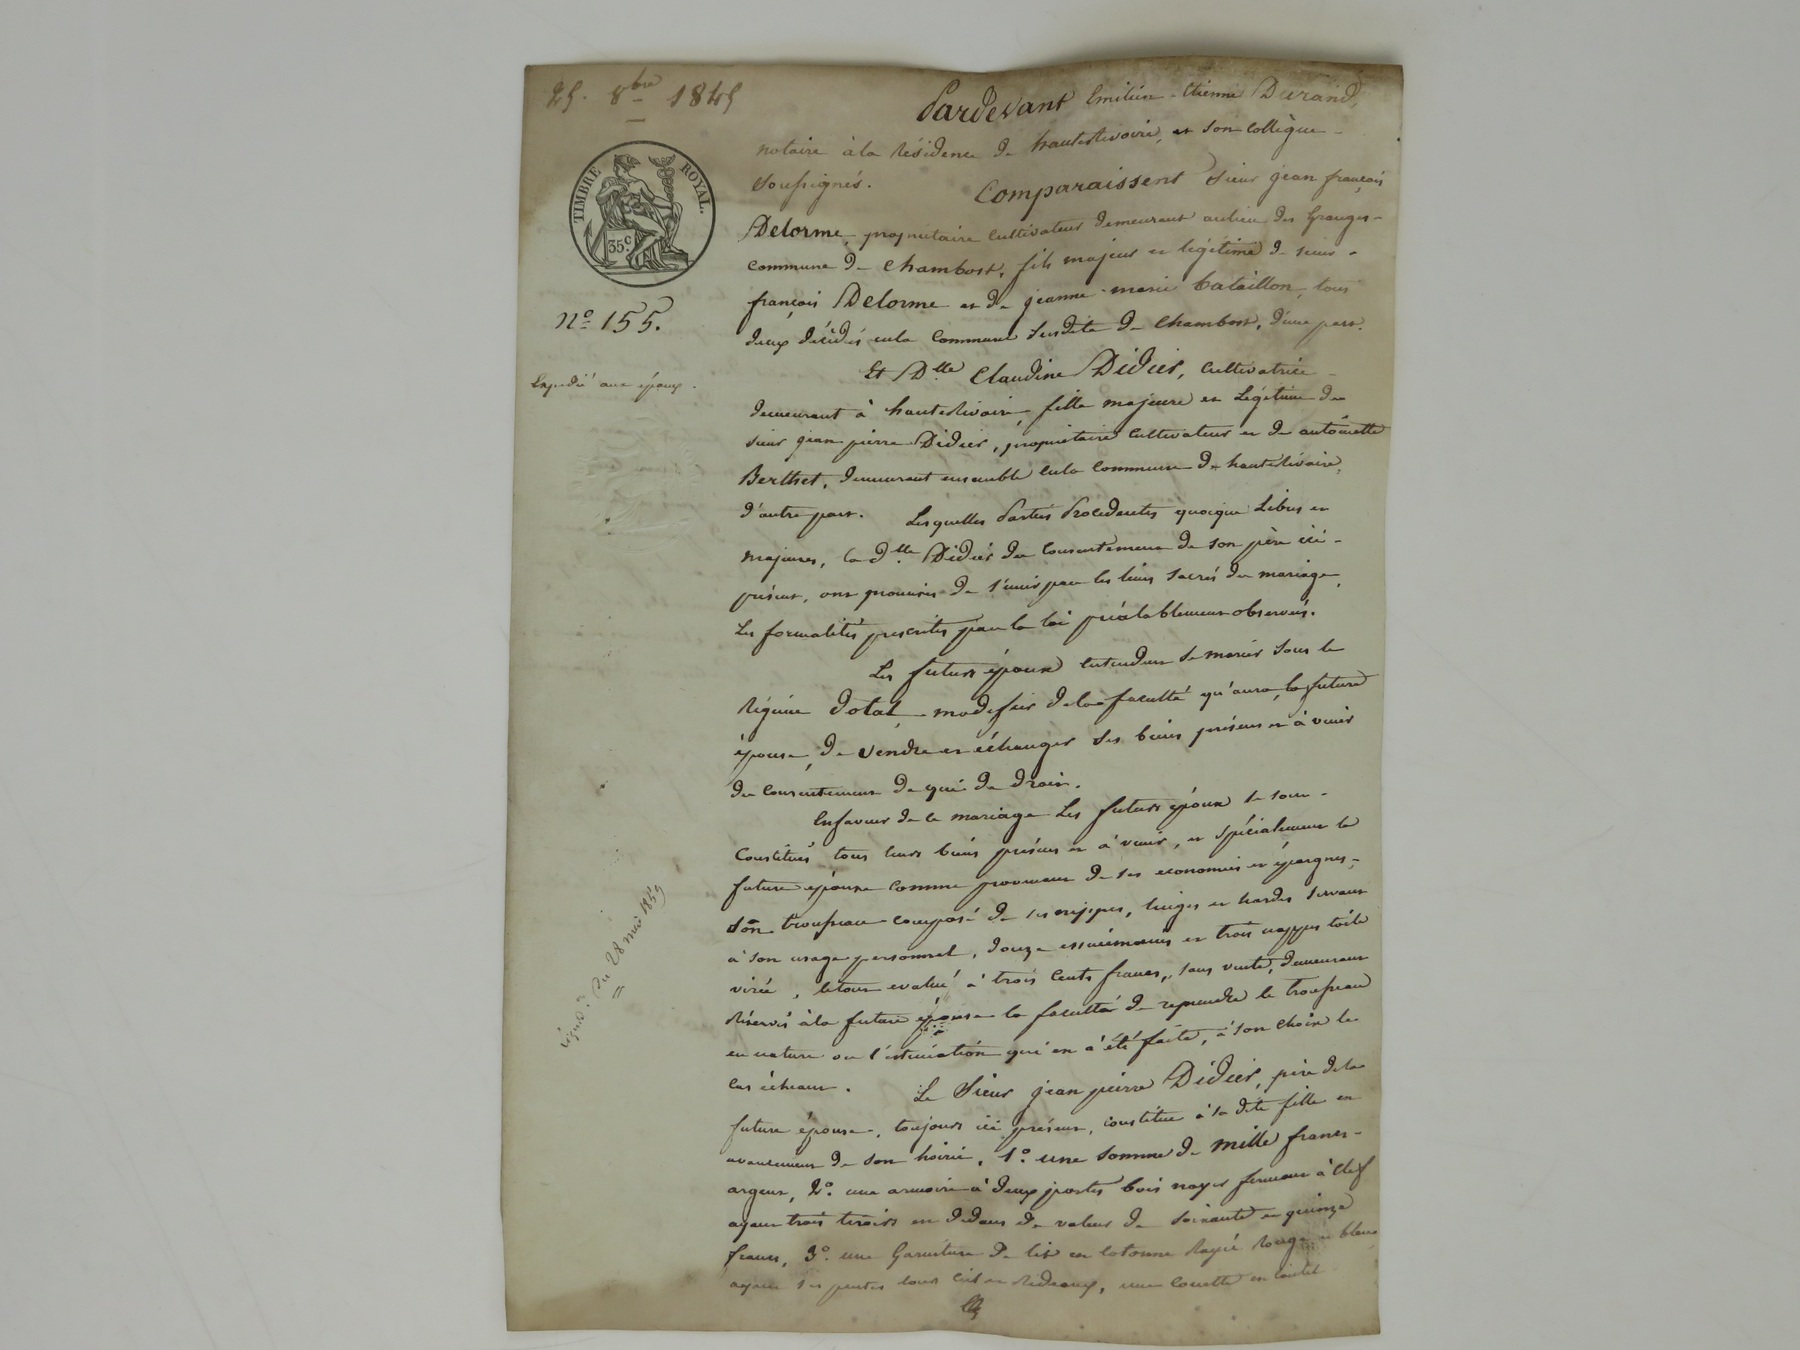 25. 8bre 1845
Pardevant Emilien Etienne Durand,
notaire à la résidence de hauterivoire, et son collègue
soussignés. Comparaissent Sieur jean françois
Delorme, propriétaire cultivateur demeurant au lieu des Granges
commune de Chambost, fils majeur et légitime de sieur
françois Delorme et de jeanne marie Bataillon, tous
deux décédés en la commune susdite de Chambost, d'une part.
Et Dlle Claudine Didier, cultivatrice
demeurant à hauterivoire fille majeure et légitime de
sieur jean pierre Didier, propriétaire cultivateur et de antoinette
Berthet, demeurant ensemble en la commune de hauterivoire,
d'autre part. Lesquelles Parties Procédantes quoique libres et
majeures, la dlle Didier du consentement de son père ici
présent, ont promis de s'unir par les liens sacrés du mariage,
les formalités prescrites par la loi préalablement observées.
Les futurs époux entendent se marier sous le
Régime dotal modifié de la faculté qu'aura la future
épouse, de vendre et échanger ses biens présens et à venir
du consentement de qui de droit.
En faveur de ce mariage Les futurs époux se sont
constitués tous leurs biens présens et à venir, et spécialement la
future épouse comme provenant de ses economies et épargnes,
son trousseau composé de ses nippes, linges et hardes servant
à son usage personnel, douze essuiemains et trois nappes toile
virée, le tout evalué à trois cents francs, sans vente, demeurant
réservée à la future épouse la faculté de reprendre le trousseau
en nature ou l'estimation qui en a été faite, à son choix le
cas échéant. Le Sieur jean pierre Didier, père de la
future épouse, toujours ici présent, constitue à sa dite fille en
avancement de son hoirie, 1o. une somme de mille francs
argent, 2o. une armoire à deux portes bois noyer fermant à clef
ayant trois tiroirs en dedans de valeur de soixante et quinze
francs, 3o. une Garniture de lit en cotonne rayée rouge et blanc
ayant ses pentes tour ciel et rideaux, une couette en coutil
TIMBRE ROYAL.
35c
No 155.
Expédié aux époux.
du 28 mai 1859